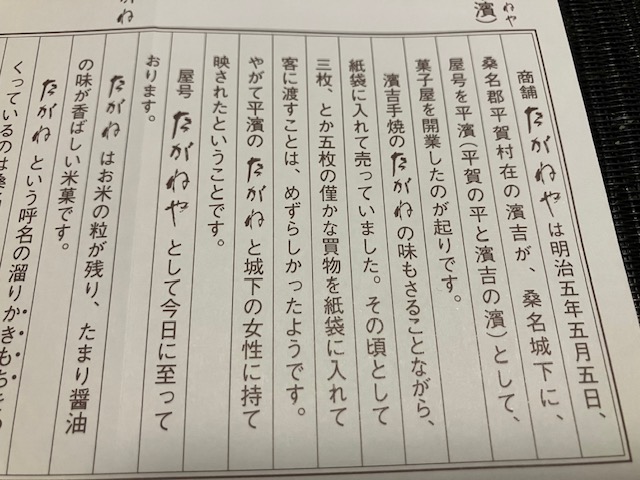 ねや
濱）
がね
商舗たがねやは明治五年五月五日、
桑名郡平賀村在の濱吉が、桑名城下に、
屋号を平濱（平賀の平と濱吉の濱）として、
菓子屋を開業したのが起りです。
濱吉手焼のたがねの味もさることながら、
紙袋に入れて売っていました。その頃として
三枚、とか五枚の僅かな買物を紙袋に入れて
客に渡すことは、めずらしかったようです。
やがて平濱のたがねと城下の女性に持て
映されたということです。
屋号たがねやとして今日に至って
おります。
たがねはお米の粒が残り、たまり醤油
の味が香ばしい米菓です。
たがねという呼名の溜りかきもちをつ
くっているのは桑